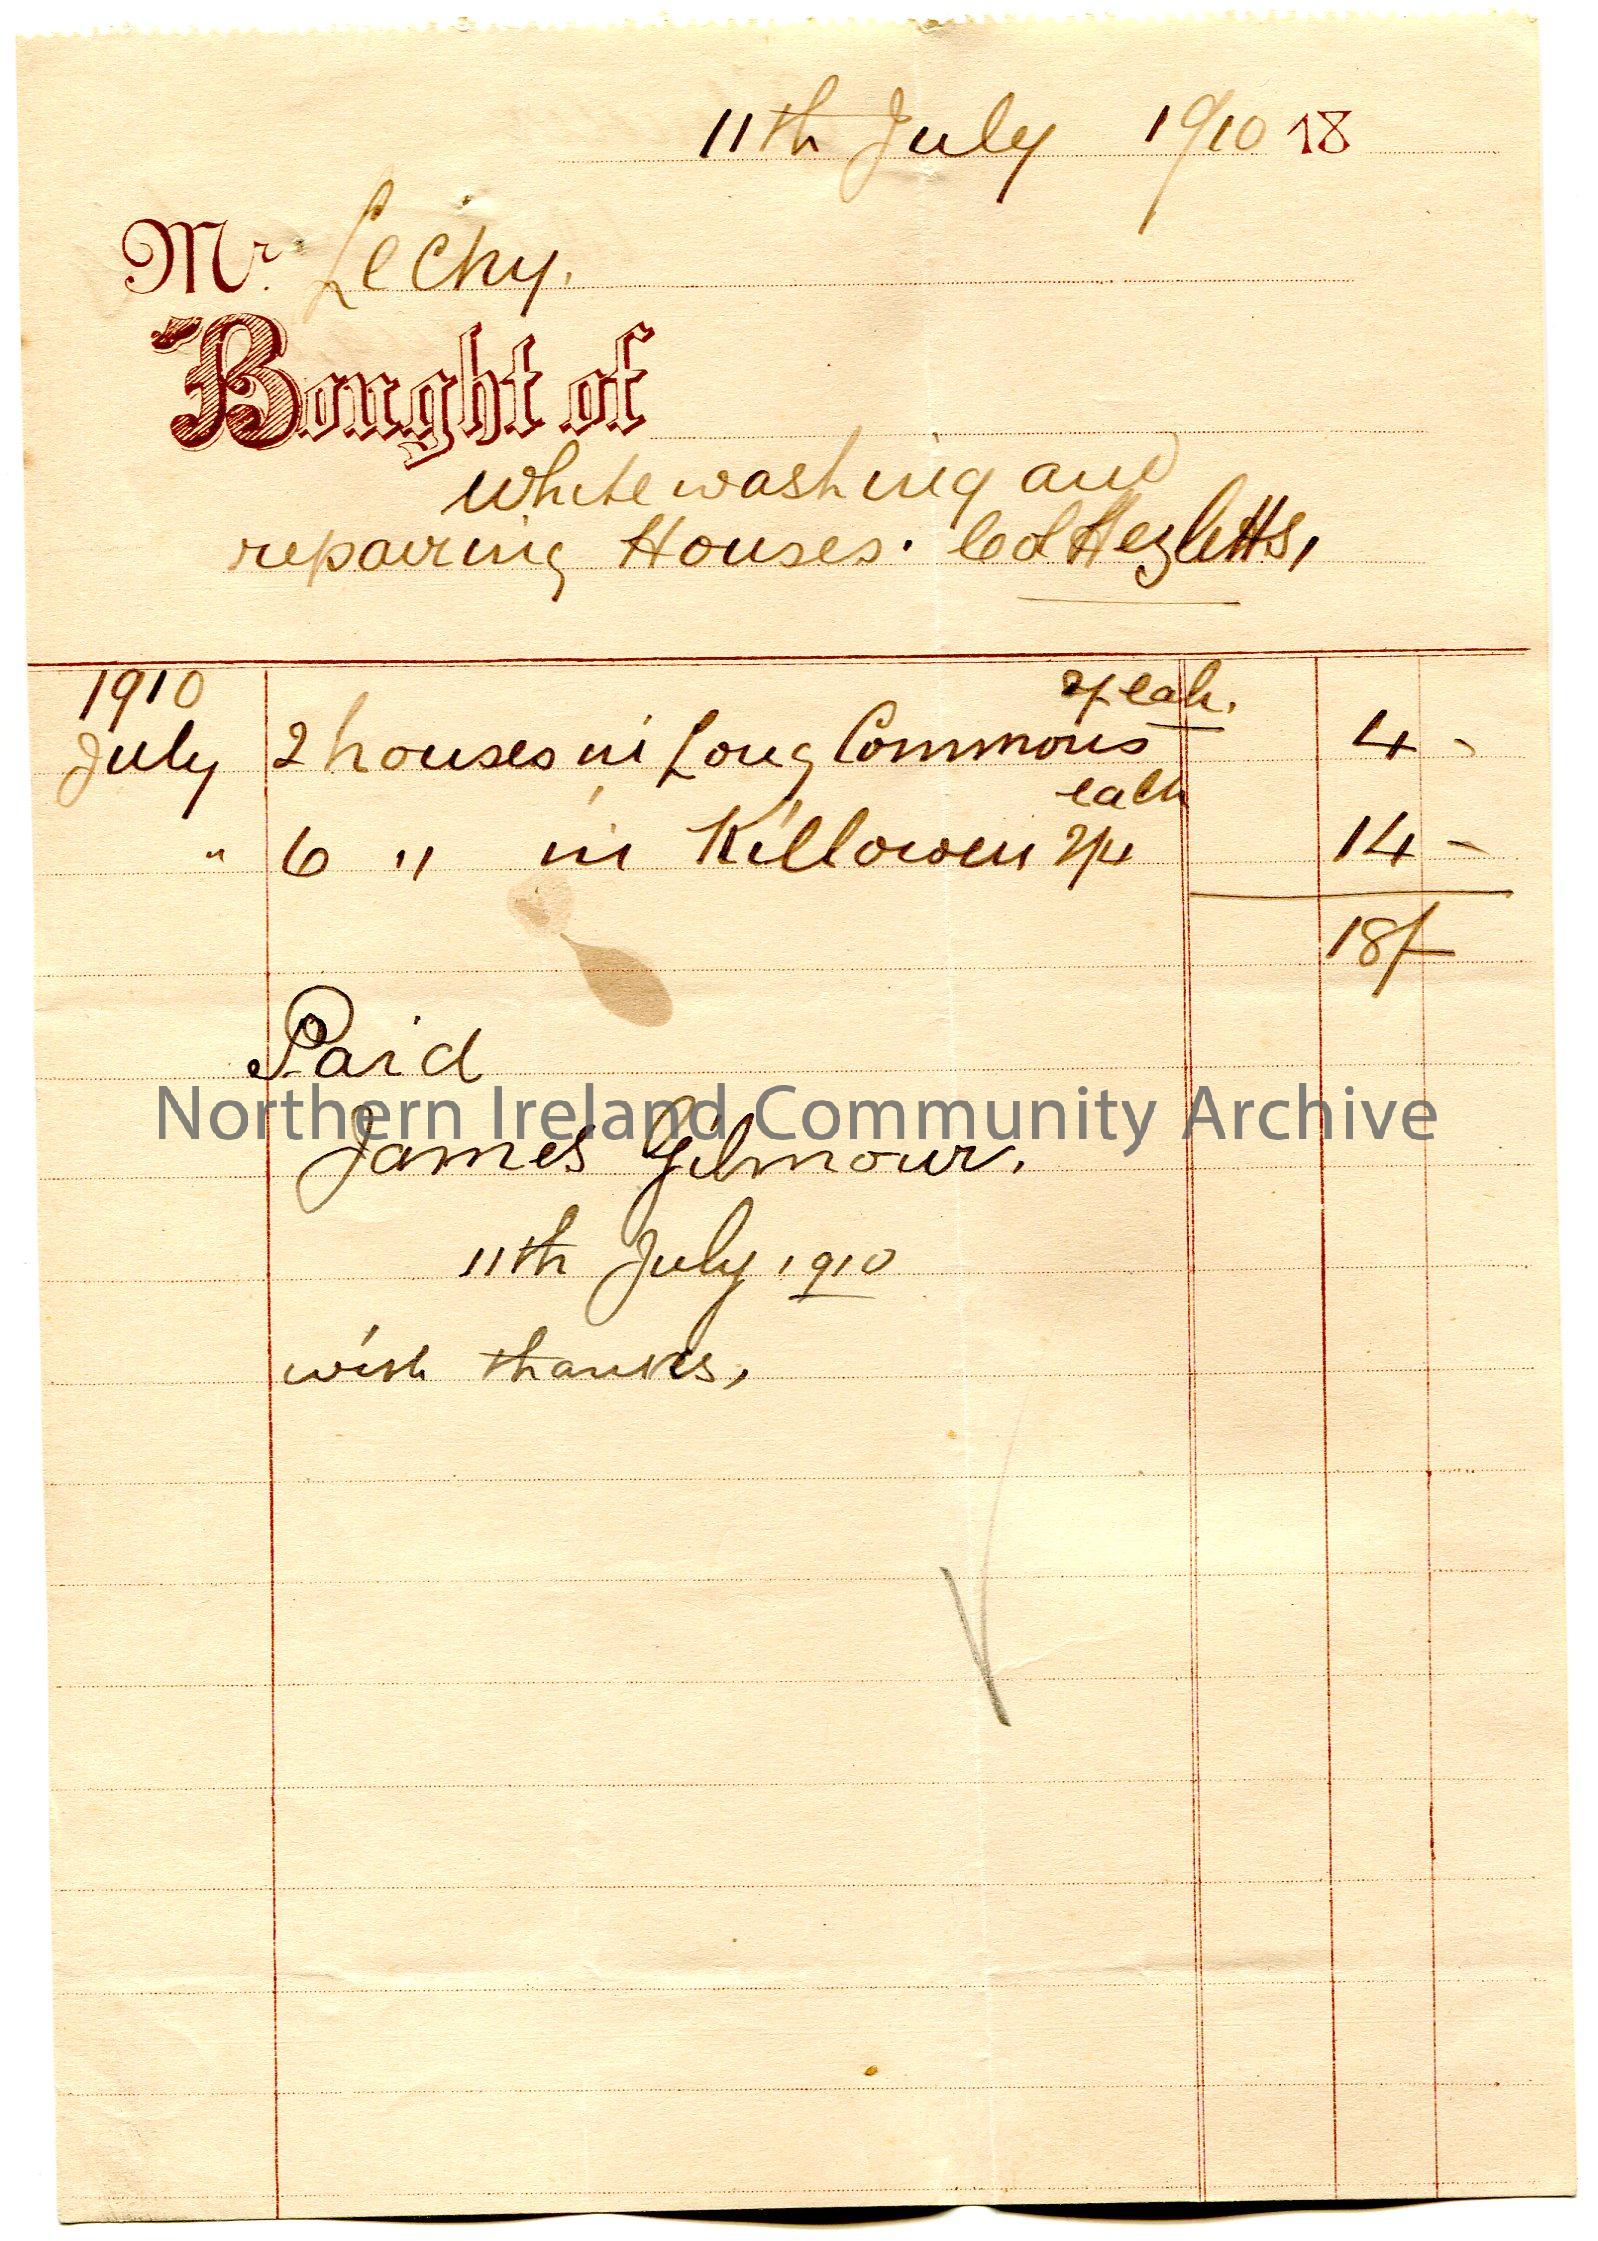 11th July 1910 18
Mr. Lecky.
Bought of
Whitewashing and
repairing Houses. Col Hezletts,
1910
2/ each.
July 2 houses in Long Commons 4 -
each
" 6 " in Killowen 2/4 14 -
18/-
Paid
Northern Ireland Community Archive
James Gilmour.
11th July 1910
with thanks,